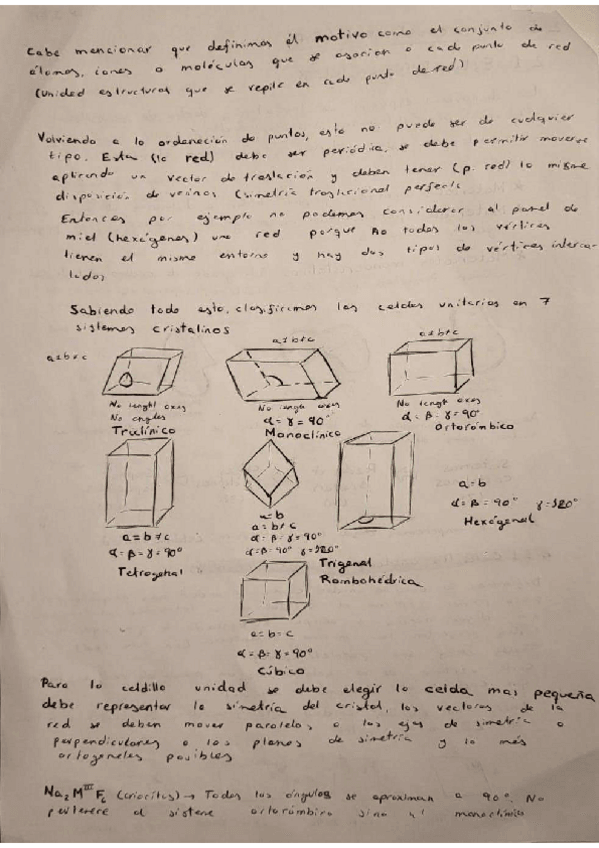 Cabe mencionar que definimos el motivo como el conjunto de
átomos, iones o moléculas que se asocian a cada punto de red
(unidad estructural que se repite en cada punto de red)
Volviendo a la ordenación de puntos, esto no puede ser de cualquier
tipo. Esta (la red) debe ser periódica, se debe permitir moverse
aplicando un vector de traslación y deben tener (p. red) la misma
disposición de vecinos (simetría traslacional perfecta
Entonces por ejemplo no podemos considerar al panel de
miel (hexágonos) una red porque no todos los vértices
tienen el mismo entorno y hay dos tipos de vértices interca-
lados
Sabiendo todo esto, clasificamos las celdas unitarias en 7
sistemas cristalinos
a≠b≠c
a≠b≠c
a≠b≠c
No lenght axes
No angles
Triclínico
No lengh axes
α = γ = 90°
Monoclínico
No lengh axes
α = β = γ = 90°
Ortorómbico
a = b ≠ c
α = β = γ = 90°
Tetragonal
a = b
a = b ≠ c
α = β = γ = 90°
α = β = 90° γ = 120°
Trigonal
Rombohédrica
a = b
α = β = 90° γ = 120°
Hexágonal
a = b = c
α = β = γ = 90°
Cúbico
Para la celdilla unidad se debe elegir la celda mas pequeña
debe representar la simetría del cristal, los vectores de la
red se deben mover paralelos a los ejes de simetría o
perpendiculares a los planos de simetría y lo más
ortogonales posibles
Na₂ M^III F₆ (criolitas) → Todos los ángulos se aproximan a 90°. No
al sistema ortorómbico sino al monoclínico